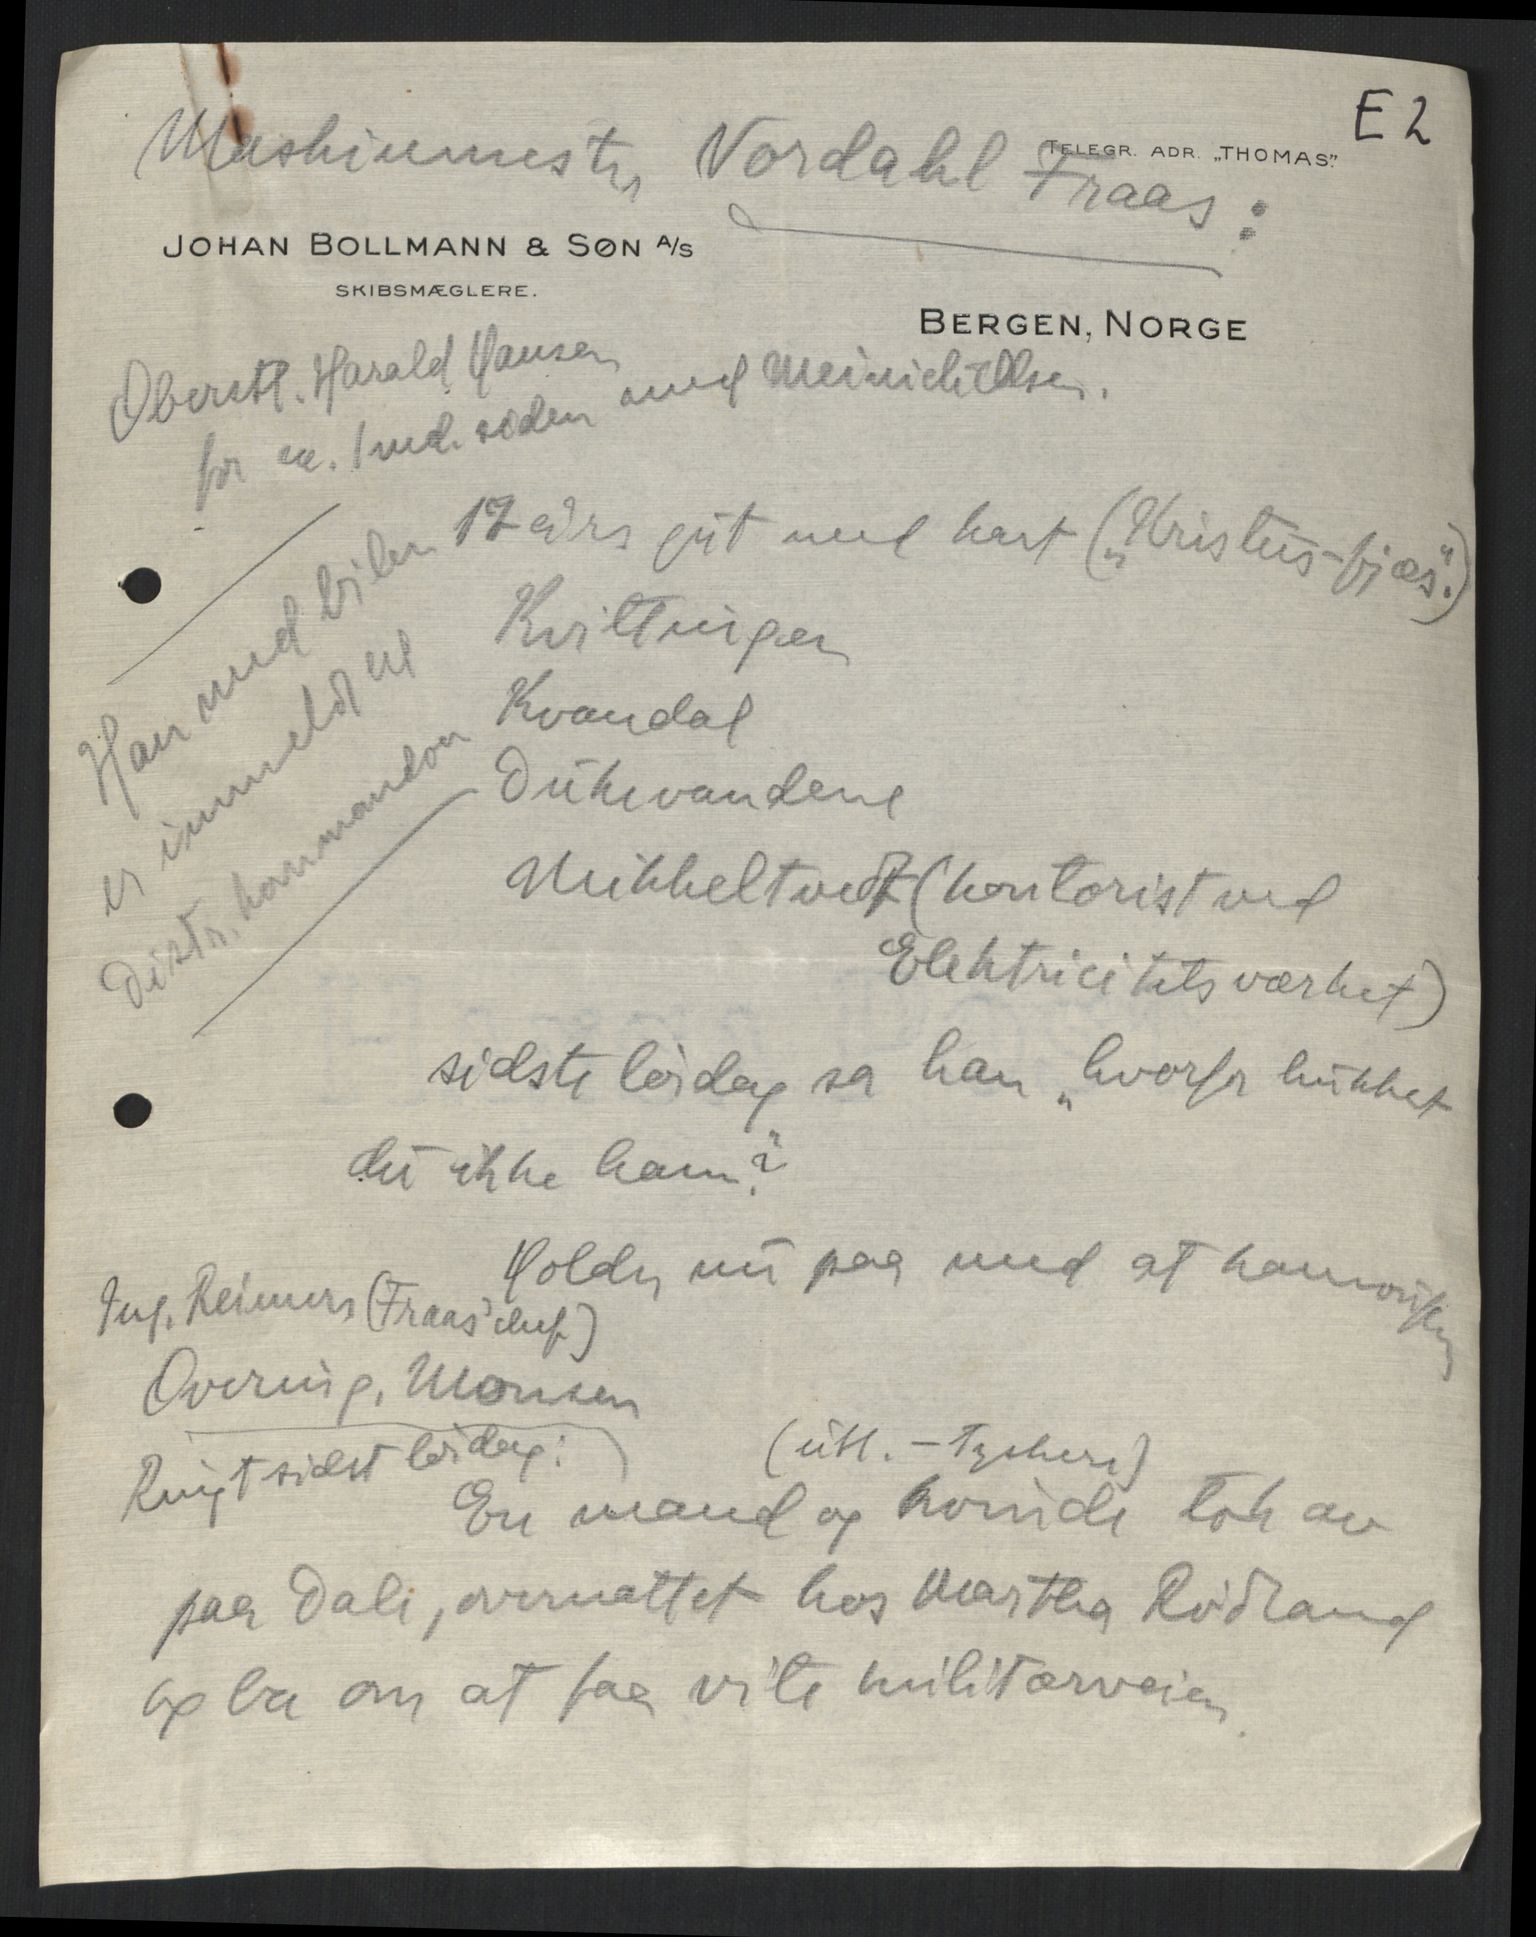 E 2
Maskinmester Nordahl Fraas:
TELEGR. ADR. „THOMAS".
JOHAN BOLLMANN & SØN A/S
SKIBSMÆGLERE.
BERGEN, NORGE
Oberstl. Harald Hansen
for ca. 1 md. siden med Meinich Olsen.
17 års gut med kart („Kristus-fjæs".)
Han med bilen
er innmeldt til
Distr. kommandoen
Kvittingen
Kvandal
Dukevandene
Mikkeltvedt (kontorist ved
Elektricitetsværket)
sidste lördag sa han „hvorfor hukket
du ikke ham?"
Holder nu paa med at kamouflere
Ing. Reimers (Fraas' chef)
Overing. Monsen
Ringt sidst lördag:
(utl. - tyskere)
En mand og kvinde tok av
paa Dale, overnattet hos Martha Rödland
og ba om at faa vite militærveien.